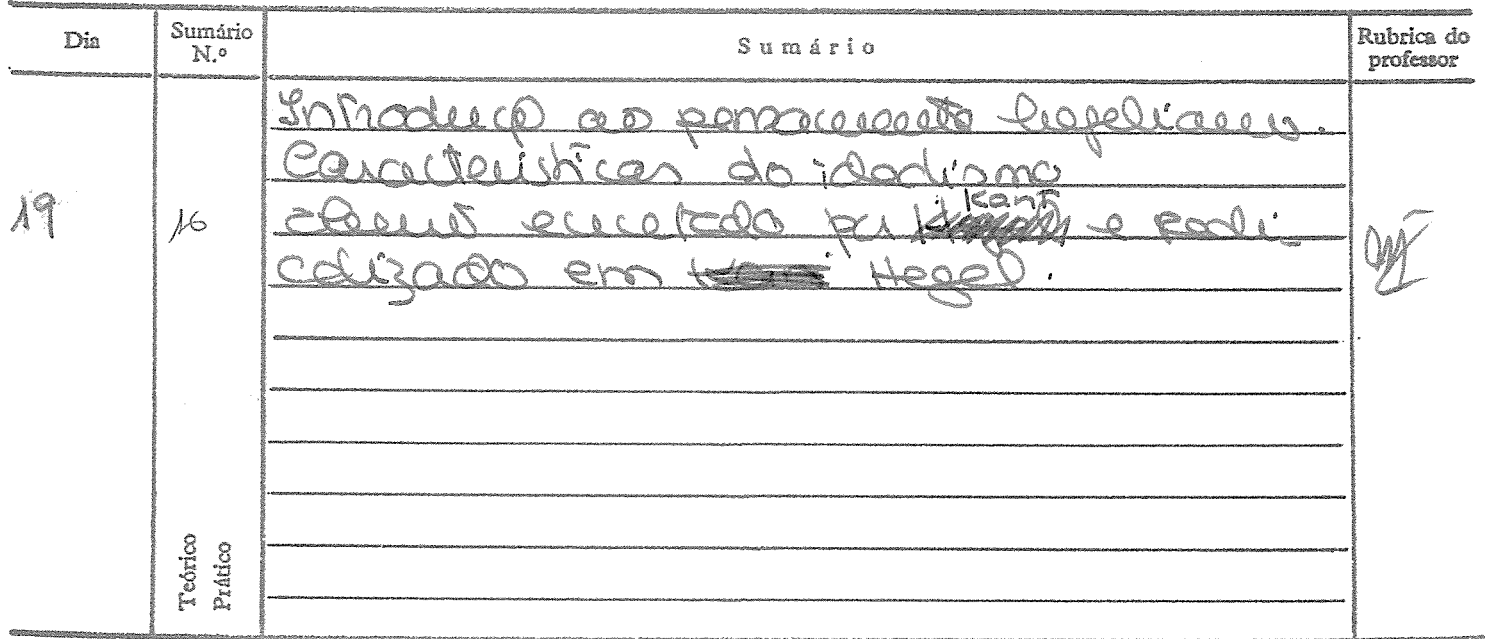 Dia Sumário N.º Sumário Rubrica do professor
Introdução ao pensamento hegeliano.
Características do idealismo
19 16 alemão encetado por Kant e radi-
calizado em Hegel.
Teórico
Prático